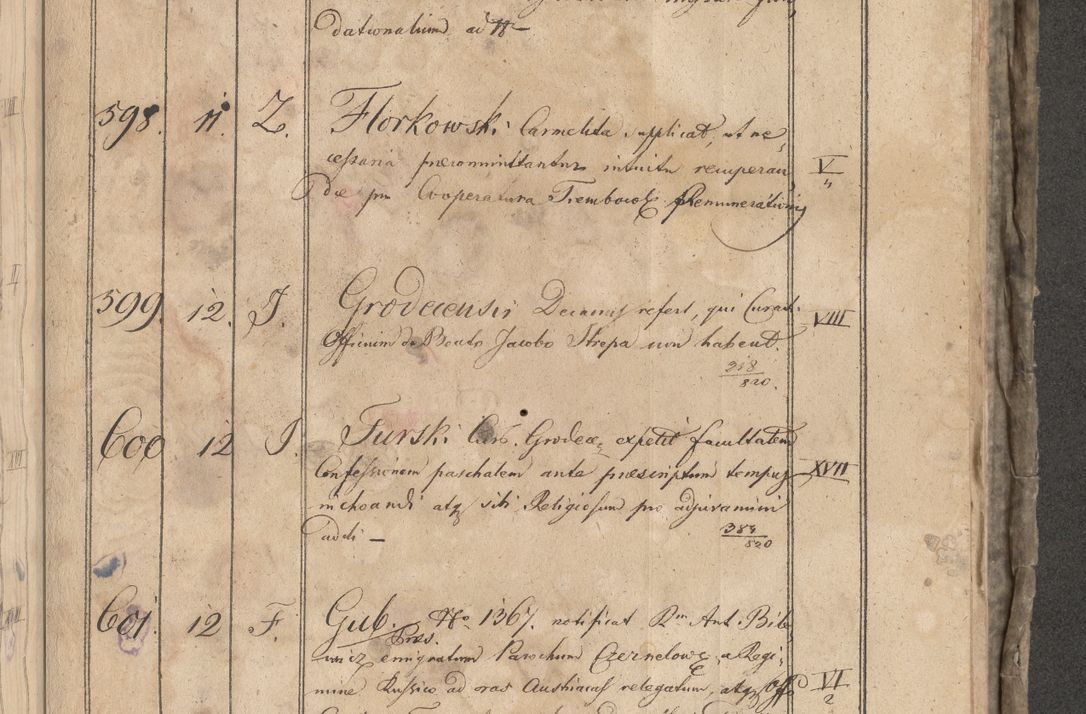 dationalium ad N
598. 11. Z. Florkowski Carmelita supplicat, ut ne,
cessaria praeommittantur intuitu recuperan,
dae pro Cooperatura Trembowl. Remunerationis
V
599. 12. J. Grodecensis Decanus refert, qui Curat.
VIII
Officium de Beato Jacobo Strepa non habent.
318
820.
600 12 J. Turski Coop. Grodec. expetit facultatem
Confessionem paschalem ante praescriptum tempus
XVII
inchoandi atq sibi Religiosum pro adjuvamini
addi —
384
820
601. 12 F. Gub. No. 1367. notificat Rm Ant. Bile,
Praes.
wicz emigratum Parochum Czernelow. a Regi,
mine Russico ad oras Austriacas relegatum, atq Offo
VI
2